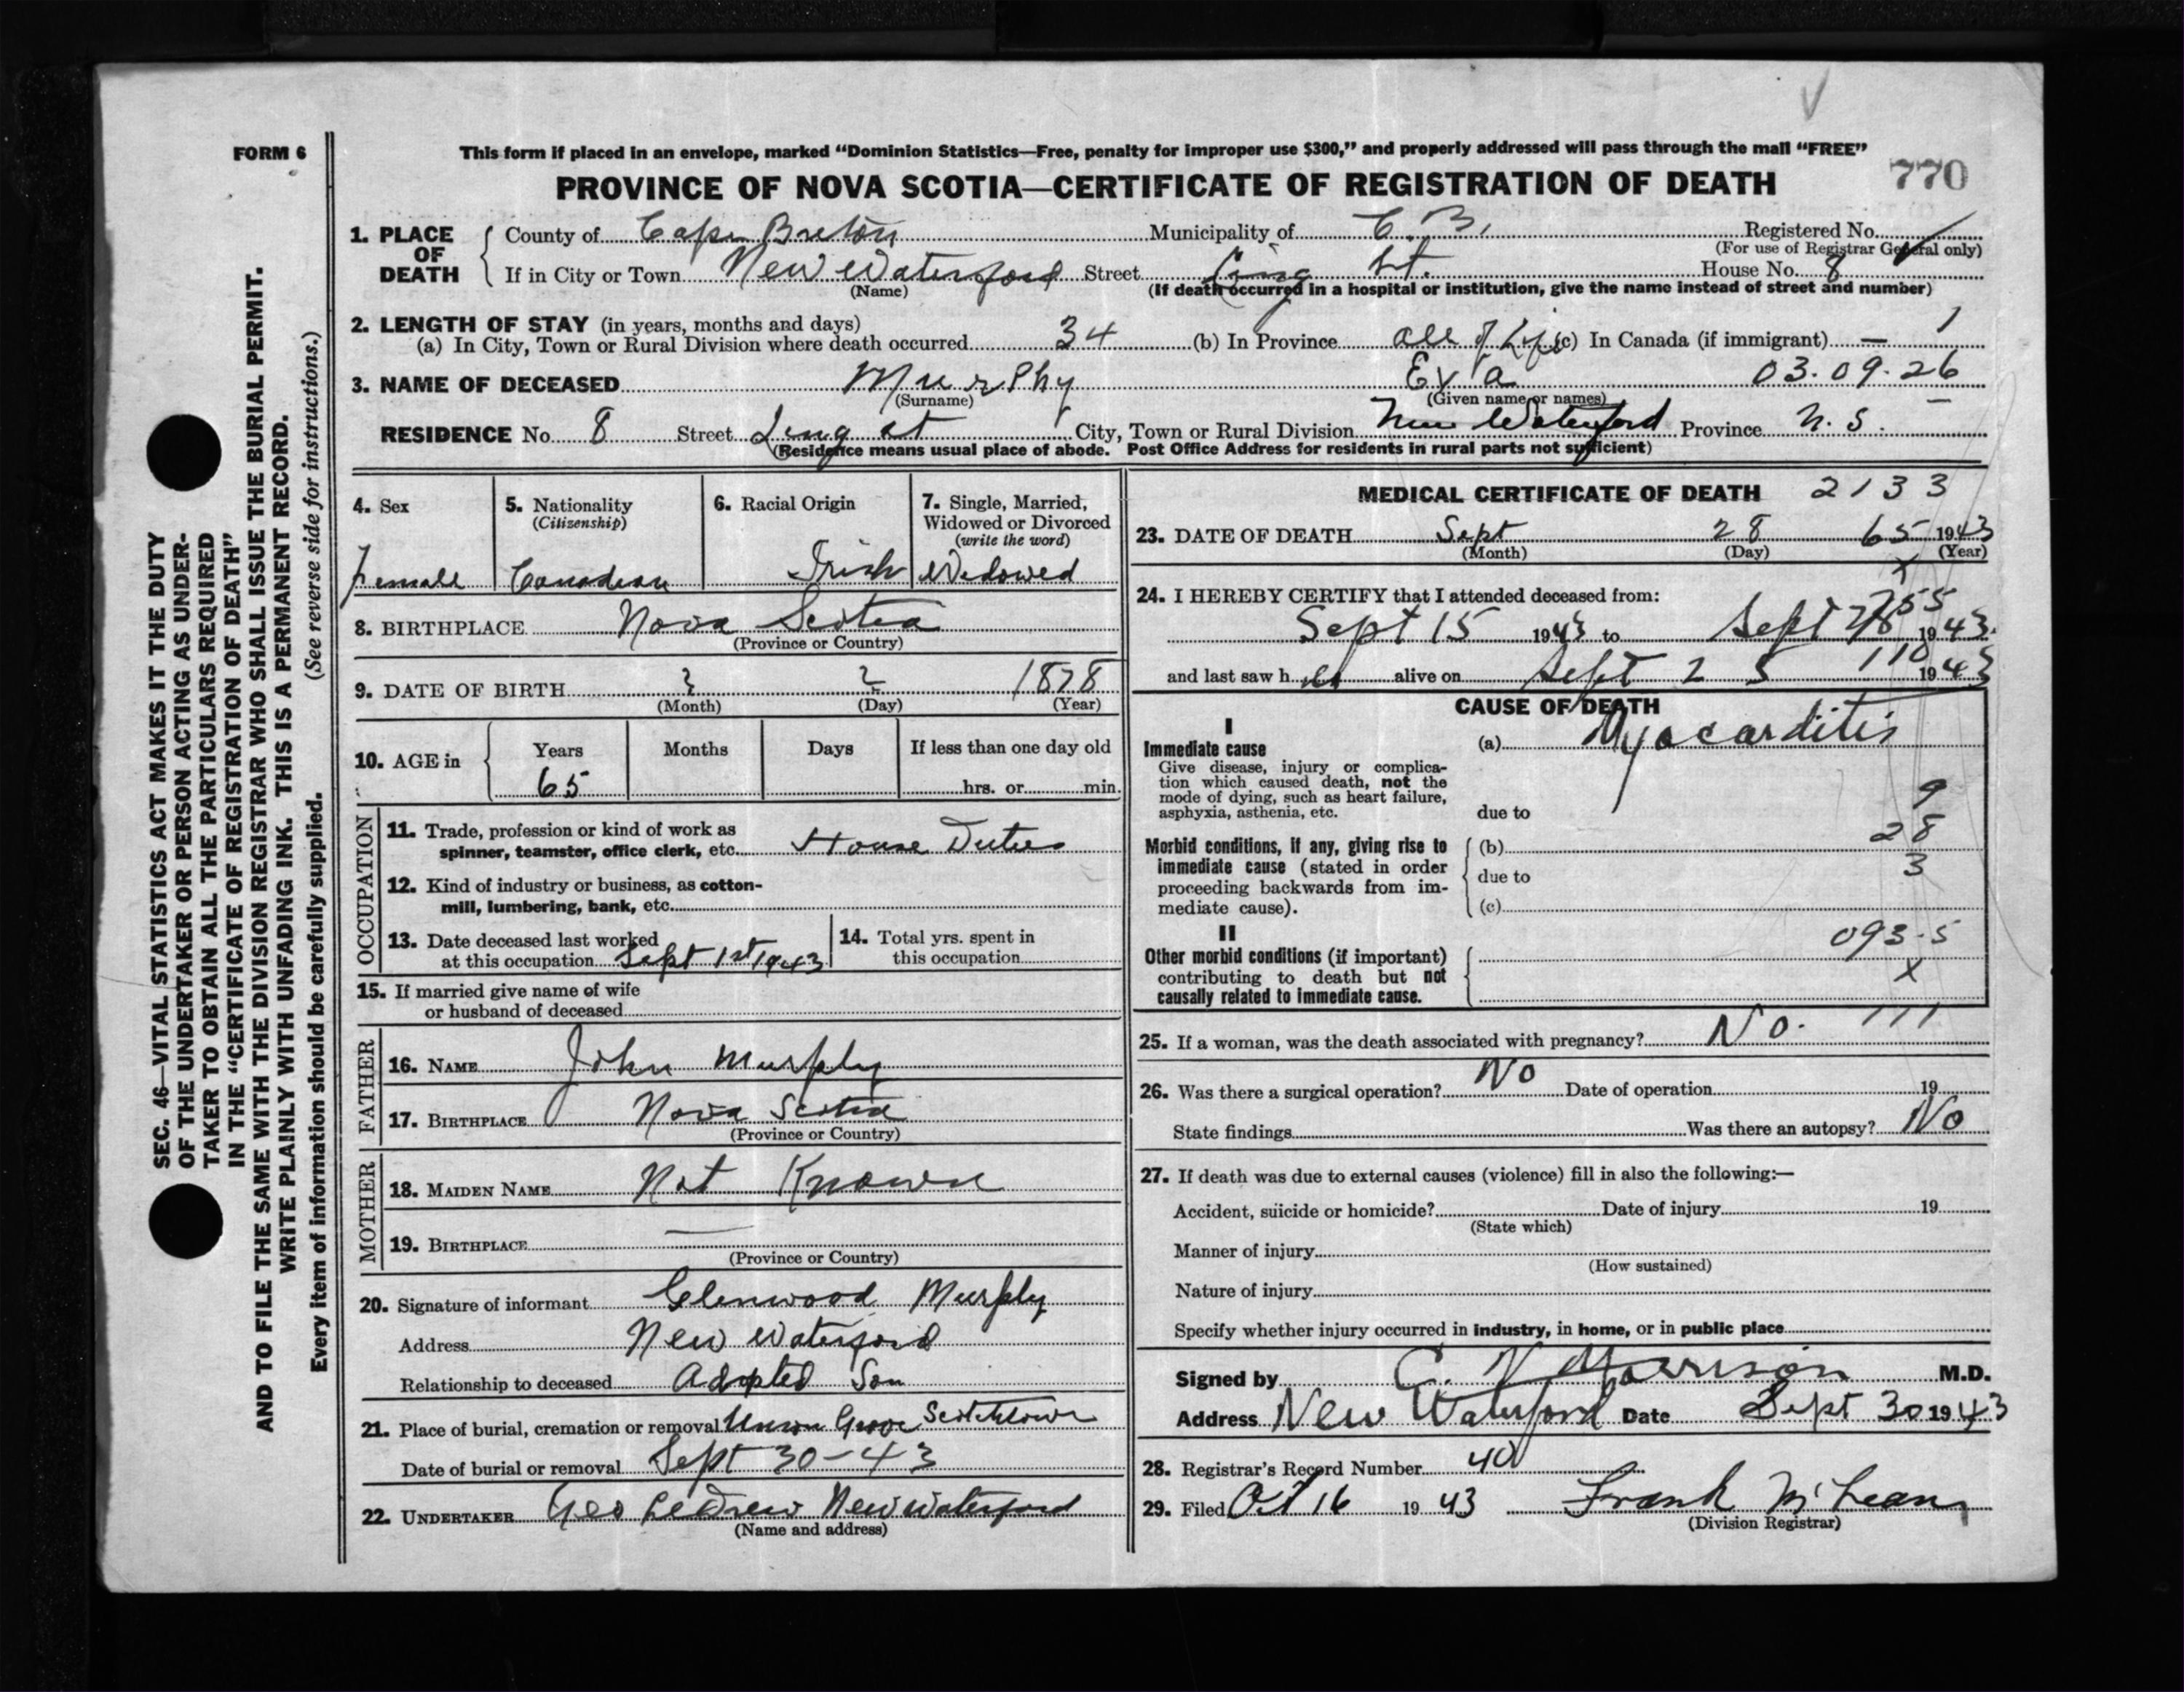 FORM 6
This form if placed in an envelope, marked “Dominion Statistics—Free, penalty for improper use $300,” and properly addressed will pass through the mail “FREE”
770
PROVINCE OF NOVA SCOTIA—CERTIFICATE OF REGISTRATION OF DEATH
1. PLACE OF DEATH
County of Cape Breton Municipality of C.B. Registered No.
(For use of Registrar General only)
If in City or Town New Waterford Street St. House No. 8
(Name) (If death occurred in a hospital or institution, give the name instead of street and number)
2. LENGTH OF STAY (in years, months and days)
(a) In City, Town or Rural Division where death occurred 34 (b) In Province all of Life (c) In Canada (if immigrant) — 1
3. NAME OF DECEASED Murphy Eva 03.09.26
(Surname) (Given name or names)
RESIDENCE No. 8 Street st City, Town or Rural Division New Waterford Province N.S.
(Residence means usual place of abode. Post Office Address for residents in rural parts not sufficient)
4. Sex
Female
5. Nationality
(Citizenship)
Canadian
6. Racial Origin
Irish
7. Single, Married,
Widowed or Divorced
(write the word)
Widowed
8. BIRTHPLACE Nova Scotia
(Province or Country)
9. DATE OF BIRTH ? ? 1878
(Month) (Day) (Year)
10. AGE in
Years Months Days If less than one day old
65 hrs. or min.
OCCUPATION
11. Trade, profession or kind of work as
spinner, teamster, office clerk, etc. House Duties
12. Kind of industry or business, as cotton-
mill, lumbering, bank, etc.
13. Date deceased last worked
at this occupation Sept 1st 1943
14. Total yrs. spent in
this occupation
15. If married give name of wife
or husband of deceased
FATHER
16. NAME John Murphy
17. BIRTHPLACE Nova Scotia
(Province or Country)
MOTHER
18. MAIDEN NAME Not Known
19. BIRTHPLACE —
(Province or Country)
20. Signature of informant Glenwood Murphy
Address New Waterford
Relationship to deceased Adopted Son
21. Place of burial, cremation or removal Union Grove Scotchtown
Date of burial or removal Sept 30-43
22. UNDERTAKER Geo LeDrew New Waterford
(Name and address)
MEDICAL CERTIFICATE OF DEATH 2133
23. DATE OF DEATH Sept 28 65 1943
(Month) (Day) (Year)
x
24. I HEREBY CERTIFY that I attended deceased from:
Sept 15 1943 to Sept 28 1943.
and last saw h er alive on Sept 25 110 1943
CAUSE OF DEATH
I
Immediate cause
Give disease, injury or complica-
tion which caused death, not the
mode of dying, such as heart failure,
asphyxia, asthenia, etc.
(a) Myocarditis
due to
9
Morbid conditions, if any, giving rise to
immediate cause (stated in order
proceeding backwards from im-
mediate cause).
(b) 28
due to 3
(c)
II
Other morbid conditions (if important)
contributing to death but not
causally related to immediate cause.
093-5
x
25. If a woman, was the death associated with pregnancy? No. 111
26. Was there a surgical operation? No Date of operation 19
State findings Was there an autopsy? No
27. If death was due to external causes (violence) fill in also the following:—
Accident, suicide or homicide? Date of injury 19
(State which)
Manner of injury
(How sustained)
Nature of injury
Specify whether injury occurred in industry, in home, or in public place
Signed by Morrison M.D.
Address New Waterford Date Sept 30 1943
28. Registrar's Record Number 40
29. Filed Oct 16 1943 Frank McLean
(Division Registrar)
SEC. 46—VITAL STATISTICS ACT MAKES IT THE DUTY
OF THE UNDERTAKER OR PERSON ACTING AS UNDER-
TAKER TO OBTAIN ALL THE PARTICULARS REQUIRED
IN THE “CERTIFICATE OF REGISTRATION OF DEATH”
AND TO FILE THE SAME WITH THE DIVISION REGISTRAR WHO SHALL ISSUE THE BURIAL PERMIT.
WRITE PLAINLY WITH UNFADING INK. THIS IS A PERMANENT RECORD.
Every item of information should be carefully supplied. (See reverse side for instructions.)